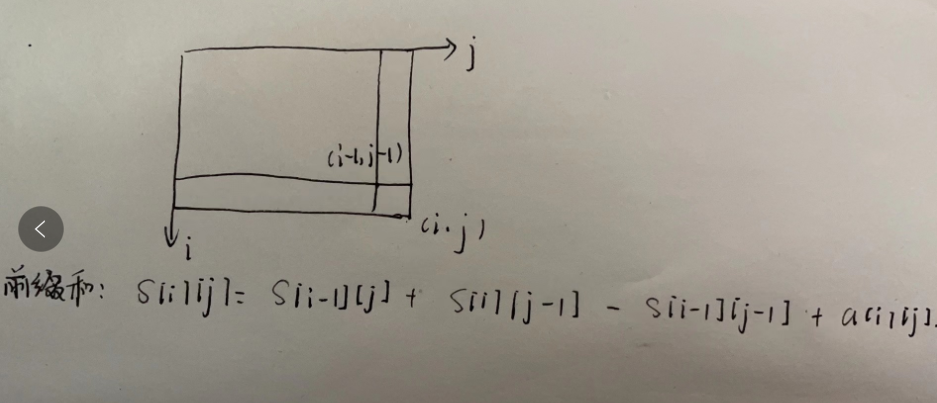 j
(i-1,j-1)
(i.j)
i
前缀和: S[i][j]= S[i-1][j] + S[i][j-1] - S[i-1][j-1] + a[i][j].